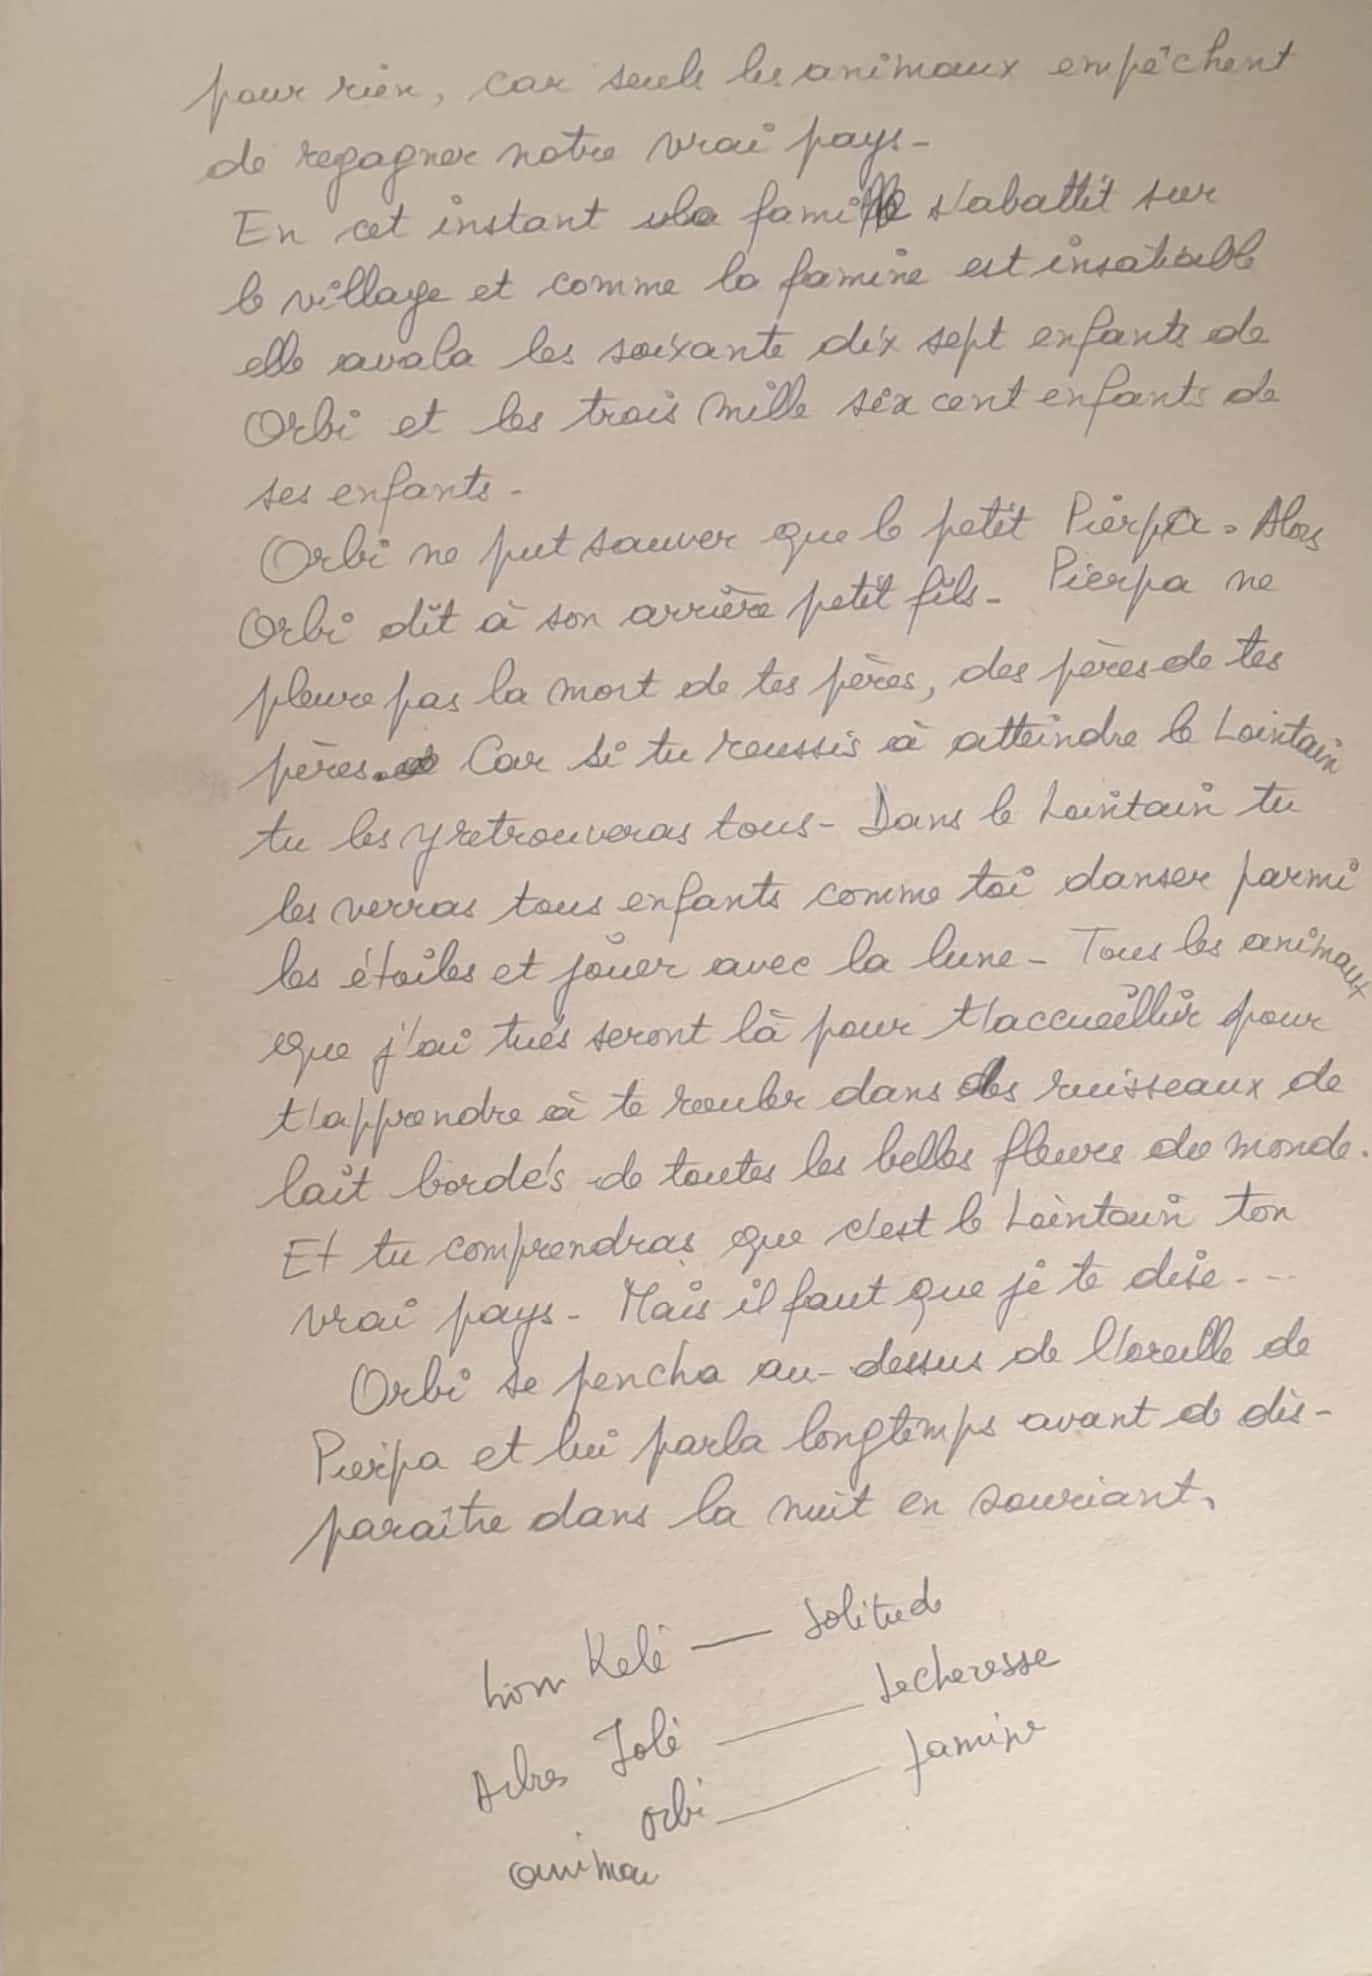 pour rien, car seuls les animaux empêchent
de regagner notre vrai pays -
En cet instant la famine s'abattit sur
le village et comme la famine est insatiable
elle avala les soixante dix sept enfants de
Orbi et les trois mille six cent enfants de
ses enfants -
Orbi ne put sauver que le petit Pierpa. Alors
Orbi dit à son arrière petit fils - Pierpa ne
pleure pas la mort de tes pères, des pères de tes
pères. Car si tu reussis à atteindre le Lointain
tu les y retrouveras tous - Dans le Lointain tu
les verras tous enfants comme toi danser parmi
les étoiles et jouer avec la lune - Tous les animaux
que j'ai tués seront là pour t'accueillir pour
t'apprendre à te rouler dans des ruisseaux de
lait bordés de toutes les belles fleurs du monde.
Et tu comprendras que c'est le Lointain ton
vrai pays - Mais il faut que je te dise - - -
Orbi se pencha au-dessus de l'oreille de
Pierpa et lui parla longtemps avant de dis-
paraître dans la nuit en souriant.
Kelé — Solitude
Arbres Jolé — secheresse
Orbi — famine
animau